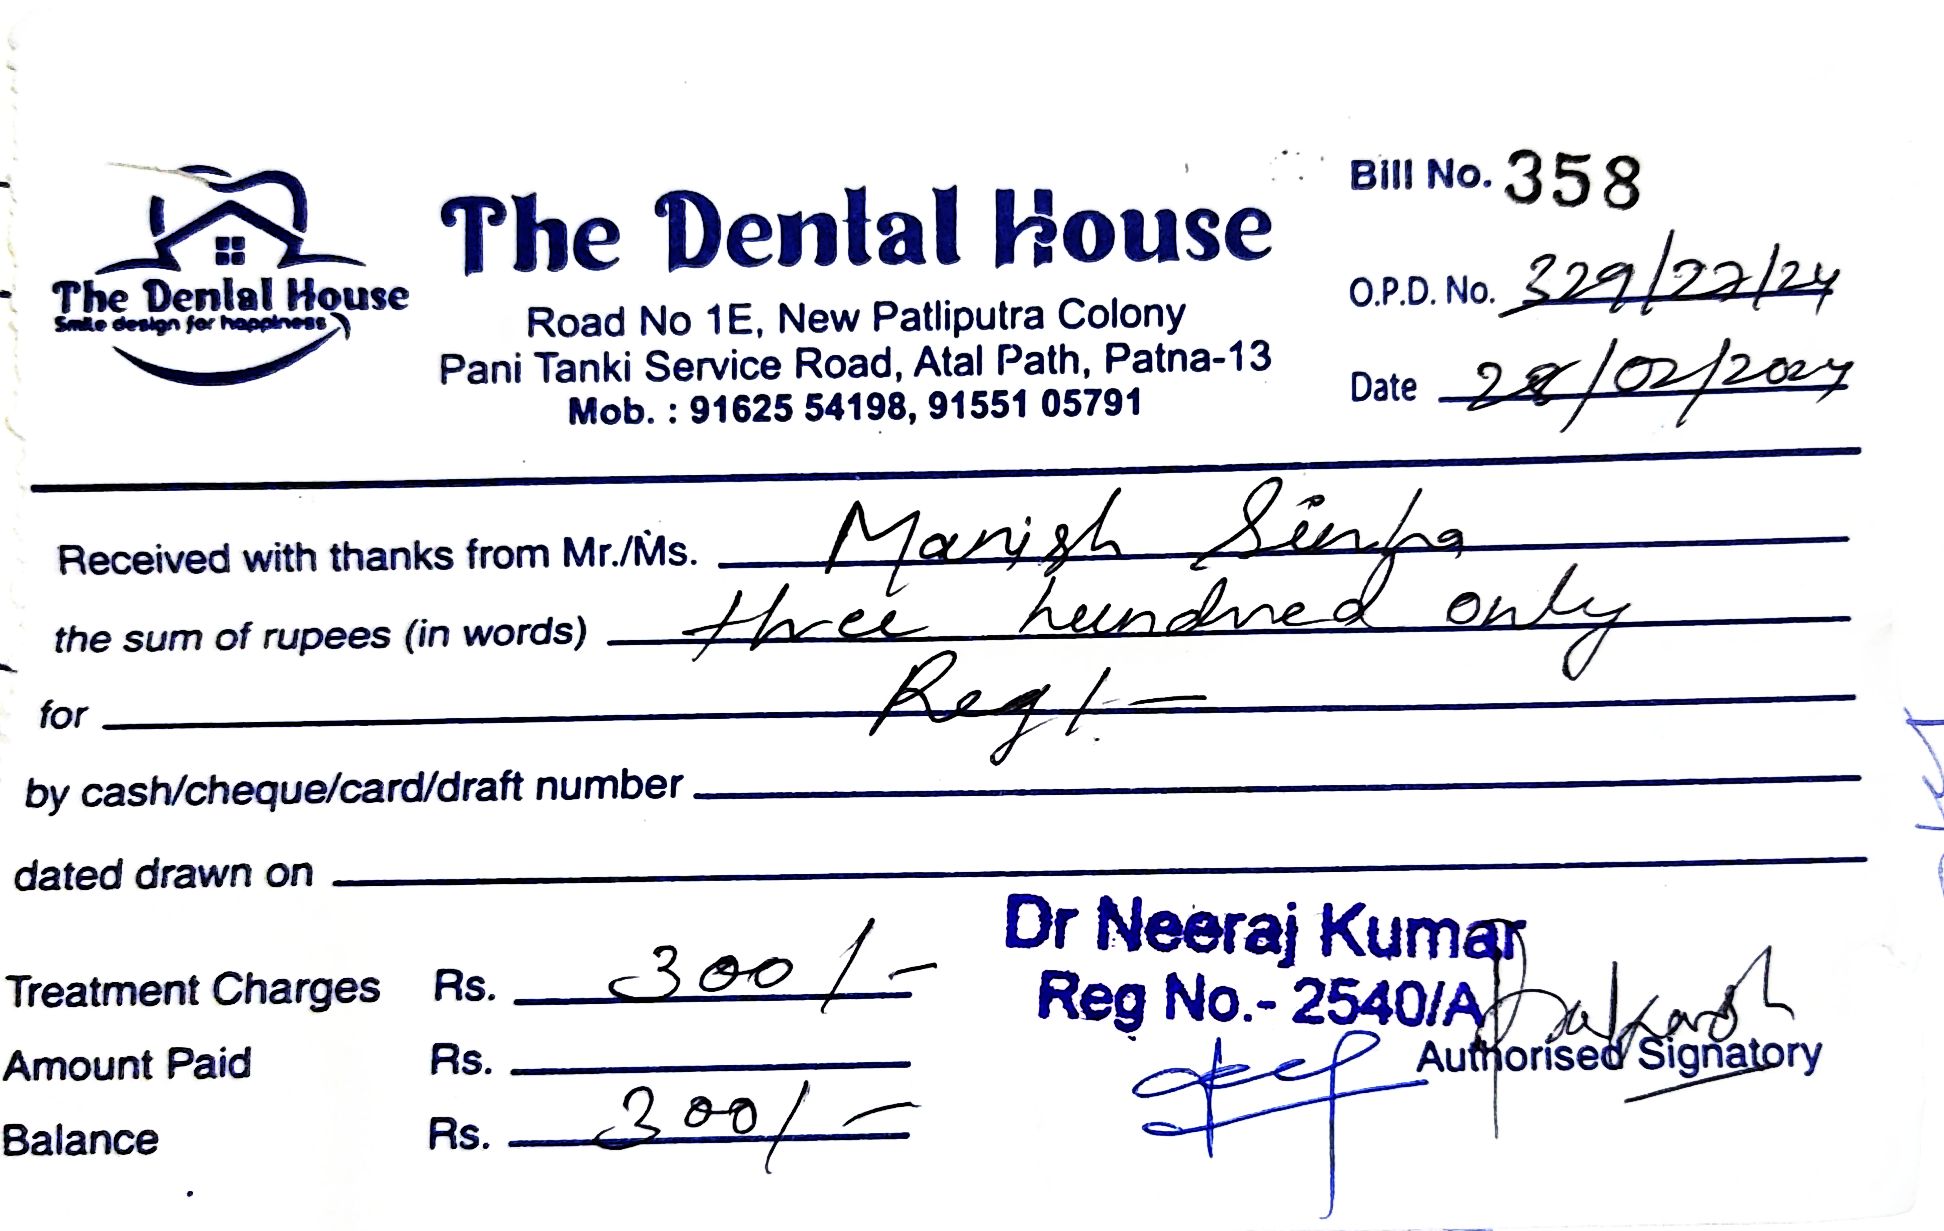 The Dental House
Smile design for happiness
The Dental House
Road No 1E, New Patliputra Colony
Pani Tanki Service Road, Atal Path, Patna-13
Mob. : 91625 54198, 91551 05791
Bill No. 358
O.P.D. No. 329/22/24
Date 28/02/2024
Received with thanks from Mr./Ms. Manish Sinha
the sum of rupees (in words) three hundred only
for Reg/-
by cash/cheque/card/draft number
dated drawn on
Treatment Charges Rs. 300/-
Amount Paid Rs.
Balance Rs. 300/-
Dr Neeraj Kumar
Reg No.- 2540/A
Authorised Signatory